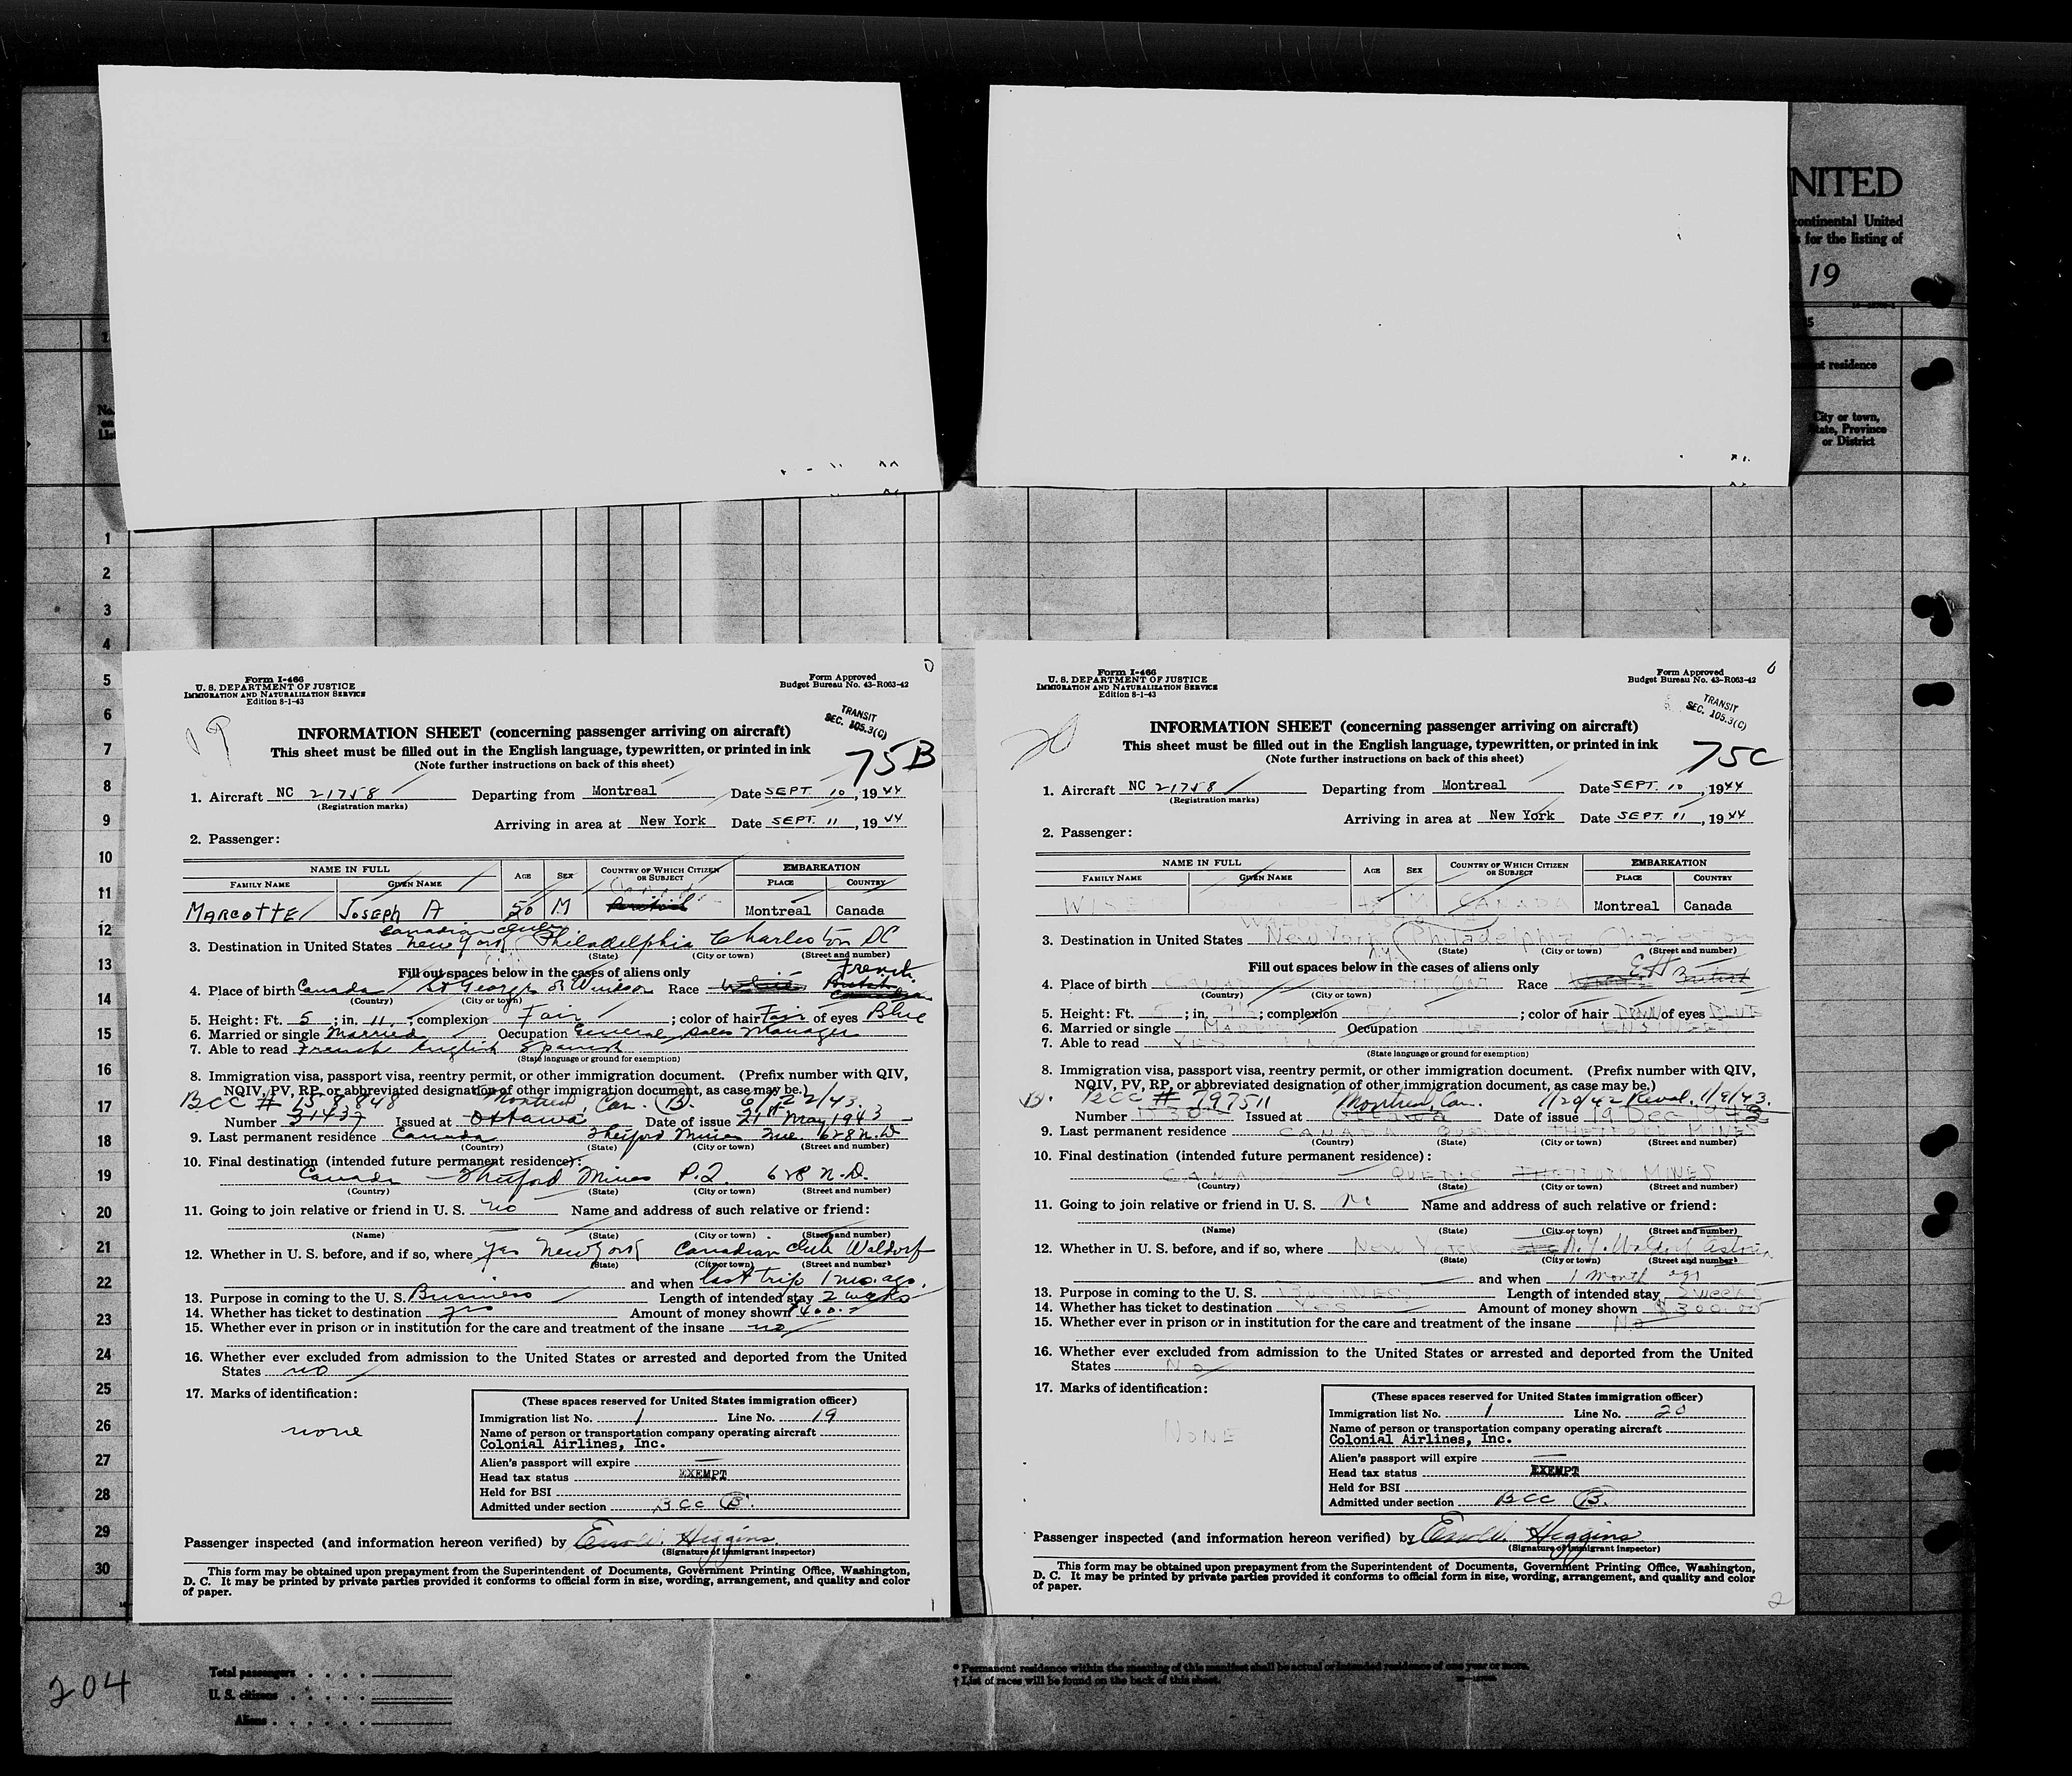 NITED
continental United
s for the listing of
19
nt residence
City or town,
State, Province
or District
No.
on
List
1
2
3
4
5
6
7
8
9
10
11
12
13
14
15
16
17
18
19
20
21
22
23
24
25
26
27
28
29
30
Form I-466
U. S. DEPARTMENT OF JUSTICE
IMMIGRATION AND NATURALIZATION SERVICE
Edition 8-1-43
Form Approved
Budget Bureau No. 43-R063-42
19
TRANSIT
SEC. 105.3(C)
INFORMATION SHEET (concerning passenger arriving on aircraft)
This sheet must be filled out in the English language, typewritten, or printed in ink
(Note further instructions on back of this sheet)
75B
1. Aircraft NC 21758 Departing from Montreal Date SEPT. 10, 1944
(Registration marks)
Arriving in area at New York Date SEPT. 11, 1944
2. Passenger:
NAME IN FULL AGE SEX COUNTRY OF WHICH CITIZEN OR SUBJECT EMBARKATION
FAMILY NAME GIVEN NAME PLACE COUNTRY
Canada
MARCOTTE JOSEPH A 50 M British Montreal Canada
Canadian Club
3. Destination in United States New York Philadelphia Charleston SC
(State) (City or town) (Street and number)
Fill out spaces below in the cases of aliens only
French
4. Place of birth Canada St George de Windsor Race White British Canadian
(Country) (City or town)
5. Height: Ft. 5; in. 11; complexion Fair; color of hair Fair of eyes Blue
6. Married or single Married Occupation General Sales Manager
7. Able to read French English Spanish
(State language or ground for exemption)
8. Immigration visa, passport visa, reentry permit, or other immigration document. (Prefix number with QIV,
NQIV, PV, RP, or abbreviated designation of other immigration document, as case may be.)
BCC # 158848 Montreal, Can. B. 6/22/43.
Number 31437 Issued at Ottawa Date of issue 21st May 1943
9. Last permanent residence Canada Thetford Mines Que. 628 N.D
(Country) (State) (City or town) (Street and number)
10. Final destination (intended future permanent residence):
Canada Thetford Mines P.Q. 628 N.D.
(Country) (State) (City or town) (Street and number)
11. Going to join relative or friend in U. S. no Name and address of such relative or friend:
(Name) (State) (City or town) (Street and number)
12. Whether in U. S. before, and if so, where yes New York Canadian Club Waldorf
(State) (City or town) (Street and number)
and when last trip 1 mo. ago.
13. Purpose in coming to the U. S. Business Length of intended stay 2 weeks
14. Whether has ticket to destination yes Amount of money shown $400.
15. Whether ever in prison or in institution for the care and treatment of the insane no
16. Whether ever excluded from admission to the United States or arrested and deported from the United
States no
17. Marks of identification:
none
(These spaces reserved for United States immigration officer)
Immigration list No. 1 Line No. 19
Name of person or transportation company operating aircraft
Colonial Airlines, Inc.
Alien's passport will expire
Head tax status EXEMPT
Held for BSI
Admitted under section BCC B.
Passenger inspected (and information hereon verified) by Higgins
(Signature of immigrant inspector)
This form may be obtained upon prepayment from the Superintendent of Documents, Government Printing Office, Washington,
D. C. It may be printed by private parties provided it conforms to official form in size, wording, arrangement, and quality and color
of paper.
1
Form I-466
U. S. DEPARTMENT OF JUSTICE
IMMIGRATION AND NATURALIZATION SERVICE
Edition 8-1-43
Form Approved
Budget Bureau No. 43-R063-42
20
TRANSIT
SEC. 105.3(C)
INFORMATION SHEET (concerning passenger arriving on aircraft)
This sheet must be filled out in the English language, typewritten, or printed in ink
(Note further instructions on back of this sheet)
75C
1. Aircraft NC 21758 Departing from Montreal Date SEPT. 10, 1944
(Registration marks)
Arriving in area at New York Date SEPT. 11, 1944
2. Passenger:
NAME IN FULL AGE SEX COUNTRY OF WHICH CITIZEN OR SUBJECT EMBARKATION
FAMILY NAME GIVEN NAME PLACE COUNTRY
M CANADA Montreal Canada
3. Destination in United States New York Philadelphia Charleston
(State) (City or town) (Street and number)
Fill out spaces below in the cases of aliens only
4. Place of birth Race British
(Country) (City or town)
5. Height: Ft. ; in. ; complexion ; color of hair BROWN of eyes BLUE
6. Married or single Occupation
7. Able to read YES
(State language or ground for exemption)
8. Immigration visa, passport visa, reentry permit, or other immigration document. (Prefix number with QIV,
NQIV, PV, RP, or abbreviated designation of other immigration document, as case may be.)
B. BCC # 797511 Montreal, Can. 1/20/42 Reval. 1/9/43.
Number Issued at Date of issue 19 Dec 1943
9. Last permanent residence CANADA THETFORD MINES
(Country) (State) (City or town) (Street and number)
10. Final destination (intended future permanent residence):
QUEBEC THETFORD MINES
(Country) (State) (City or town) (Street and number)
11. Going to join relative or friend in U. S. No Name and address of such relative or friend:
(Name) (State) (City or town) (Street and number)
12. Whether in U. S. before, and if so, where NEW YORK N.Y. Waldorf Astoria
(State) (City or town) (Street and number)
and when 1 month ago
13. Purpose in coming to the U. S. BUSINESS Length of intended stay 2 weeks
14. Whether has ticket to destination YES Amount of money shown $300.00
15. Whether ever in prison or in institution for the care and treatment of the insane No
16. Whether ever excluded from admission to the United States or arrested and deported from the United
States No
17. Marks of identification:
NONE
(These spaces reserved for United States immigration officer)
Immigration list No. 1 Line No. 20
Name of person or transportation company operating aircraft
Colonial Airlines, Inc.
Alien's passport will expire
Head tax status EXEMPT
Held for BSI
Admitted under section BCC B.
Passenger inspected (and information hereon verified) by Higgins
(Signature of immigrant inspector)
This form may be obtained upon prepayment from the Superintendent of Documents, Government Printing Office, Washington,
D. C. It may be printed by private parties provided it conforms to official form in size, wording, arrangement, and quality and color
of paper.
2
204
Total passengers . . . .
U. S. citizens . . . . .
Aliens . . . . . .
* Permanent residence within the meaning of this manifest shall be actual or intended residence of one year or more.
† List of races will be found on the back of this sheet.